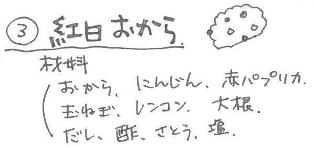 ③ 紅白おから
材料
おから、にんじん、赤パプリカ
玉ねぎ、レンコン、大根、
だし、酢、さとう、塩、